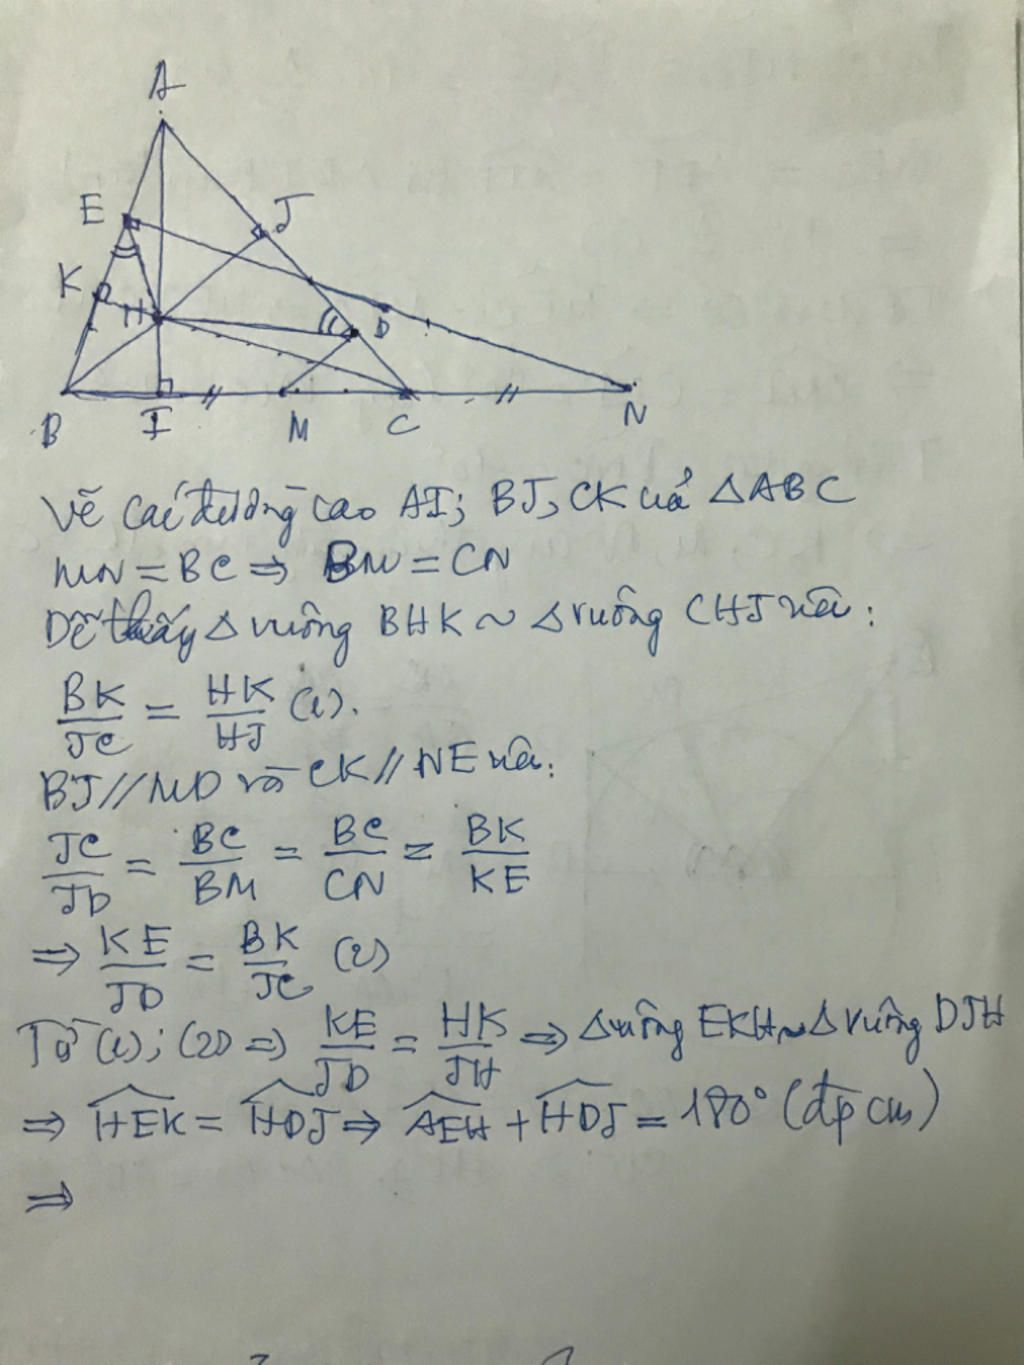 A
E
J
K
H
D
B
I
M
C
N
Vẽ các đường cao AI; BJ, CK của △ABC
MN = BC ⇒ BM = CN
Dễ thấy △ vuông BHK ~ △ vuông CHJ nên:
BK/JC = HK/HJ (1).
BJ // MD và CK // NE nên:
JC/JD = BC/BM = BC/CN = BK/KE
⇒ KE/JD = BK/JC (2)
Từ (1); (2) ⇒ KE/JD = HK/JH ⇒ △ vuông EKH ~ △ vuông DJH
⇒ \widehat{HEK} = \widehat{HDJ} ⇒ \widehat{AEH} + \widehat{HDJ} = 180° (đpcm)
⇒